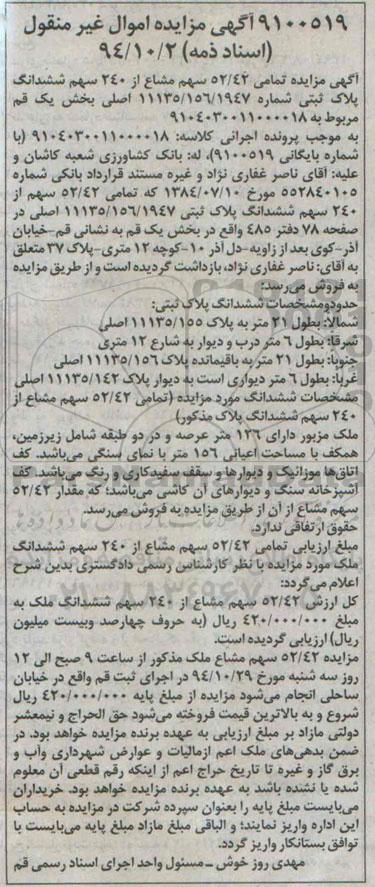 ۹۱۰۰۵۱۹ آگهی مزایده اموال غیر منقول
(اسناد ذمه) ۹۴/۱۰/۲
آگهی مزایده تمامی ۵۲/۴۲ سهم مشاع از ۲۴۰ سهم ششدانگ
پلاک ثبتی شماره ۱۱۱۳۵/۱۵۶/۱۹۴۷ اصلی بخش یک قم
مربوط به ۹۱۰۴۰۳۰۰۱۱۰۰۰۰۱۸
به موجب پرونده اجرائی کلاسه: ۹۱۰۴۰۳۰۰۱۱۰۰۰۰۱۸ (با
شماره بایگانی ۹۱۰۰۵۱۹)، له: بانک کشاورزی شعبه کاشان و
علیه: آقای ناصر غفاری نژاد و غیره مستند قرارداد بانکی شماره
۵۵۲۸۴۰۱۰۵ مورخ ۱۳۸۴/۰۷/۱۰ که تمامی ۵۲/۴۲ سهم از
۲۴۰ سهم ششدانگ پلاک ثبتی ۱۱۱۳۵/۱۵۶/۱۹۴۷ اصلی در
صفحه ۷۸ دفتر ۴۸۵ واقع در بخش یک قم به نشانی قم-خیابان
آذر-کوی بعد از زاویه-دل آذر ۱۰-کوچه ۱۲ متری-پلاک ۳۷ متعلق
به آقای: ناصر غفاری نژاد، بازداشت گردیده است و از طریق مزایده
به فروش می‌رسد:
حدودومشخصات ششدانگ پلاک ثبتی:
شمالا: بطول ۲۱ متر به پلاک ۱۱۱۳۵/۱۵۵ اصلی
شرقا: بطول ۶ متر درب و دیوار به شارع ۱۲ متری
جنوبا: بطول ۲۱ متر به باقیمانده پلاک ۱۱۱۳۵/۱۵۶ اصلی
غربا: بطول ۶ متر دیواری است به دیوار پلاک ۱۱۱۳۵/۱۴۲ اصلی
مشخصات ششدانگ مورد مزایده (تمامی ۵۲/۴۲ سهم مشاع از
۲۴۰ سهم ششدانگ پلاک مذکور)
ملک مزبور دارای ۱۲۶ متر عرصه و در دو طبقه شامل زیرزمین،
همکف با مساحت اعیانی ۱۵۶ متر با نمای سنگی می‌باشد. کف
اتاق‌ها موزائیک و دیوارها و سقف سفیدکاری و رنگ می‌باشد. کف
آشپزخانه سنگ و دیوارهای آن کاشی می‌باشد؛ که مقدار ۵۲/۴۲
سهم مشاع از آن از طریق مزایده به فروش می‌رسد.
حقوق ارتفاقی ندارد.
مبلغ ارزیابی تمامی ۵۲/۴۲ سهم مشاع از ۲۴۰ سهم ششدانگ
ملک مورد مزایده با نظر کارشناس رسمی دادگستری بدین شرح
اعلام می‌گردد:
کل ارزش ۵۲/۴۲ سهم مشاع از ۲۴۰ سهم ششدانگ ملک به
مبلغ ۴۲۰/۰۰۰/۰۰۰ ریال (به حروف چهارصد وبیست میلیون
ریال) ارزیابی گردیده است.
مزایده ۵۲/۴۲ سهم مشاع ملک مذکور از ساعت ۹ صبح الی ۱۲
روز سه شنبه مورخ ۹۴/۱۰/۲۹ در اجرای ثبت قم واقع در خیابان
ساحلی انجام می‌شود مزایده از مبلغ پایه ۴۲۰/۰۰۰/۰۰۰ ریال
شروع و به بالاترین قیمت فروخته می‌شود حق الحراج و نیمعشر
دولتی مازاد بر مبلغ ارزیابی به عهده برنده مزایده خواهد بود. در
ضمن بدهی‌های ملک اعم ازمالیات و عوارض شهرداری وآب و
برق گاز و غیره تا تاریخ حراج اعم از اینکه رقم قطعی آن معلوم
شده یا نشده باشد به عهده برنده مزایده خواهد بود. خریداران
می‌بایست مبلغ پایه را بعنوان سپرده شرکت در مزایده به حساب
این اداره واریز نمایند؛ و الباقی مبلغ مازاد مبلغ پایه می‌بایست با
توافق بستانکار واریز گردد.
مهدی روز خوش - مسئول واحد اجرای اسناد رسمی قم